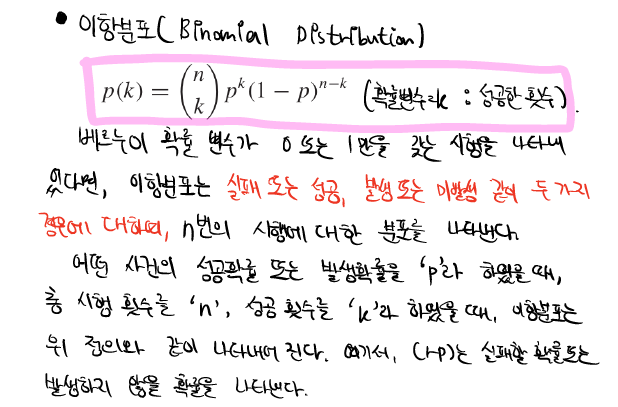 • 이항분포( Binomial Distribution)
p(k) = \binom{n}{k} p^k (1 − p)^{n−k} (확률변수 k : 성공한 횟수).
베르누이 확률 변수가 0 또는 1만을 갖는 시행을 나타내
었다면, 이항분포는 실패 또는 성공, 발생 또는 미발생 같이 두 가지
경우에 대하여, n번의 시행에 대한 분포를 나타낸다.
어떤 사건의 성공확률 또는 발생확률을 'p'라 하였을 때,
총 시행 횟수를 'n', 성공 횟수를 'k'라 하였을 때, 이항분포는
위 정의와 같이 나타내어 진다. 여기서, (1-p)는 실패할 확률 또는
발생하지 않을 확률을 나타낸다.